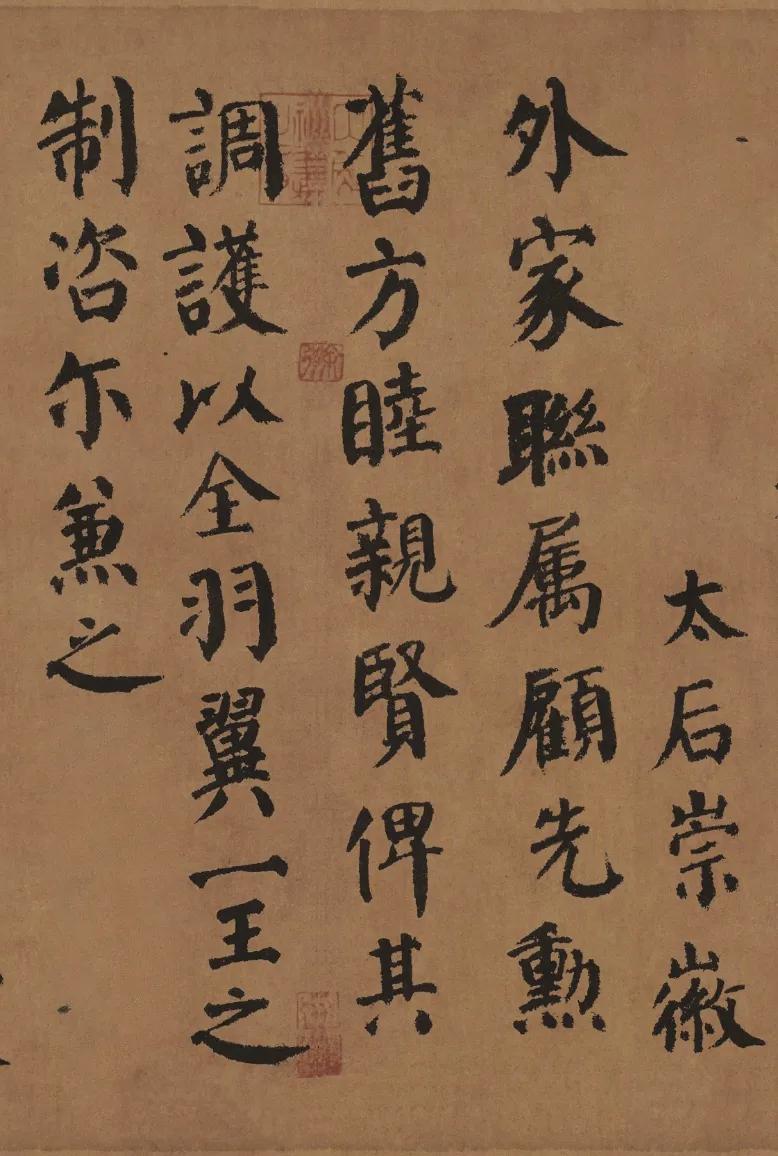 太后崇徽
外家聯属顧先勲
舊方睦親賢俾其
調護以全羽翼一王之
制咨尓兼之